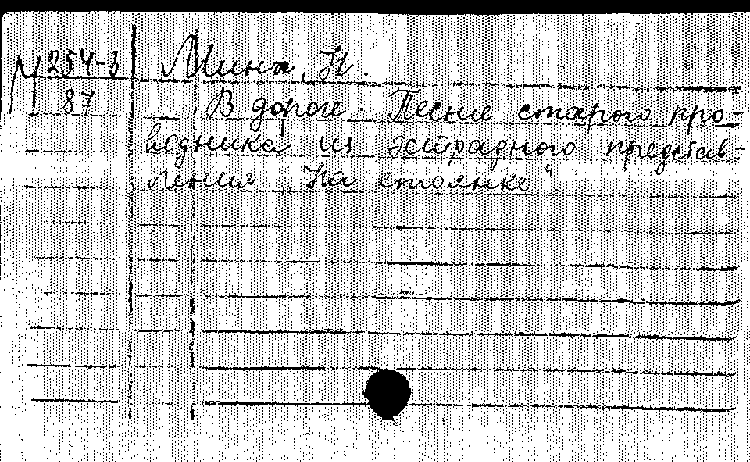 М 254-3 Минх, Н.
87 В дороге. Песня старого про-
водника из эстрадного представ-
ления "На стоянке"